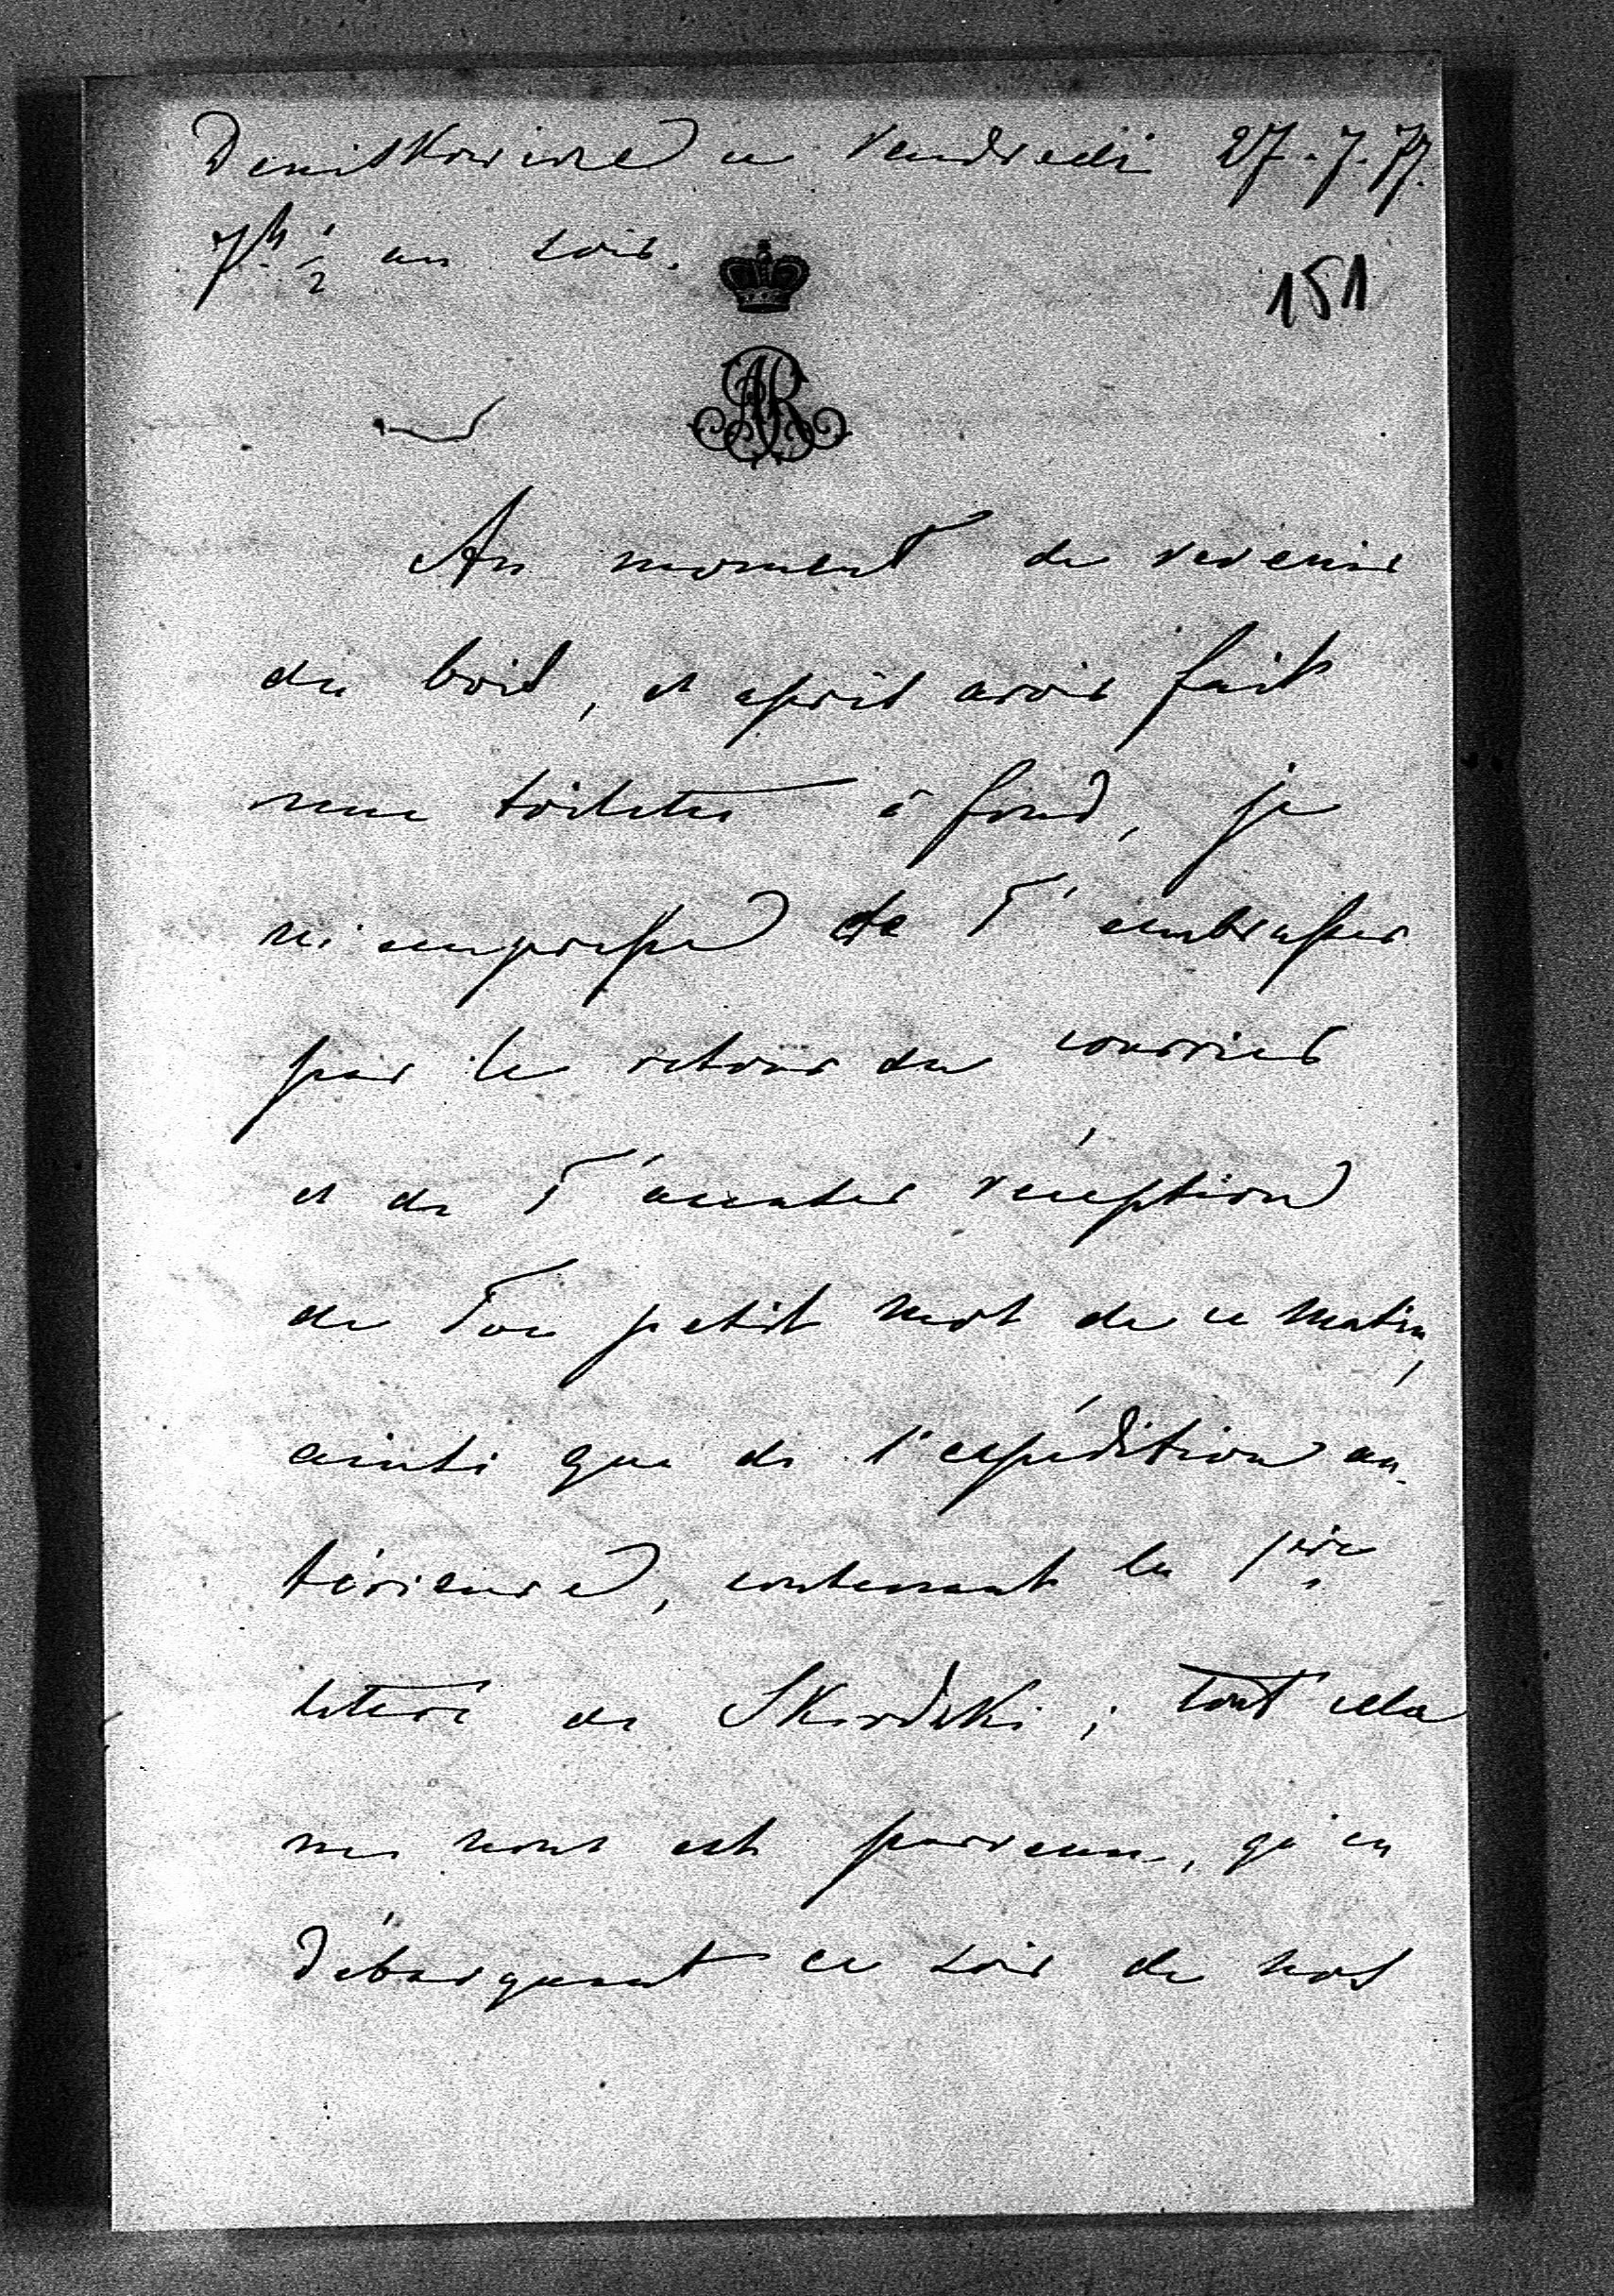 Deniskowicze ce Vendredi 27.7.77.
7h. ½ au soir.
151
AR
Au moment de revenir
du bois, et après avoir fait
une toilette à fond, je
m'empresse de T'embrasser
par le retour du courrier
et de T'accuser réception
de Ton petit mot de ce matin,
ainsi que de l'expédition an-
térieure, contenant la 1ière
lettre de Skirdski; tout cela
ne nous est parvenu, qu'en
débarquant ce soir de nos